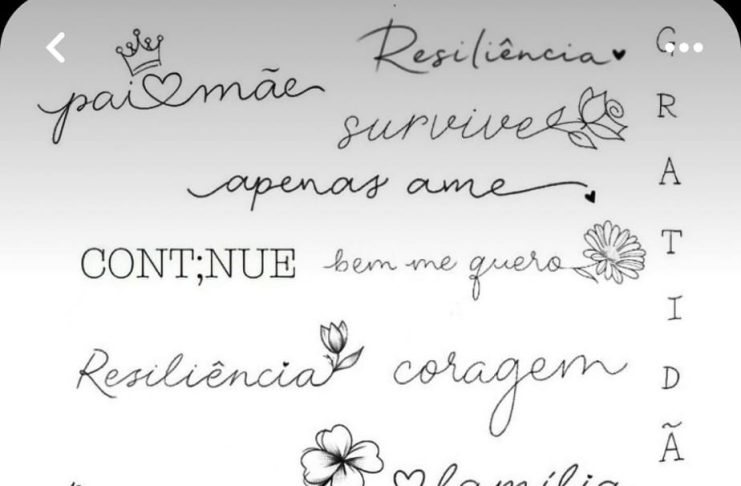 pai mãe
Resiliência
survive
apenas ame
CONT;NUE
bem me quero
Resiliência
coragem
família
GRATIDÃ